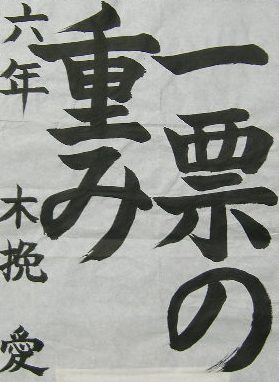 一票の
重み
六年 木挽 愛